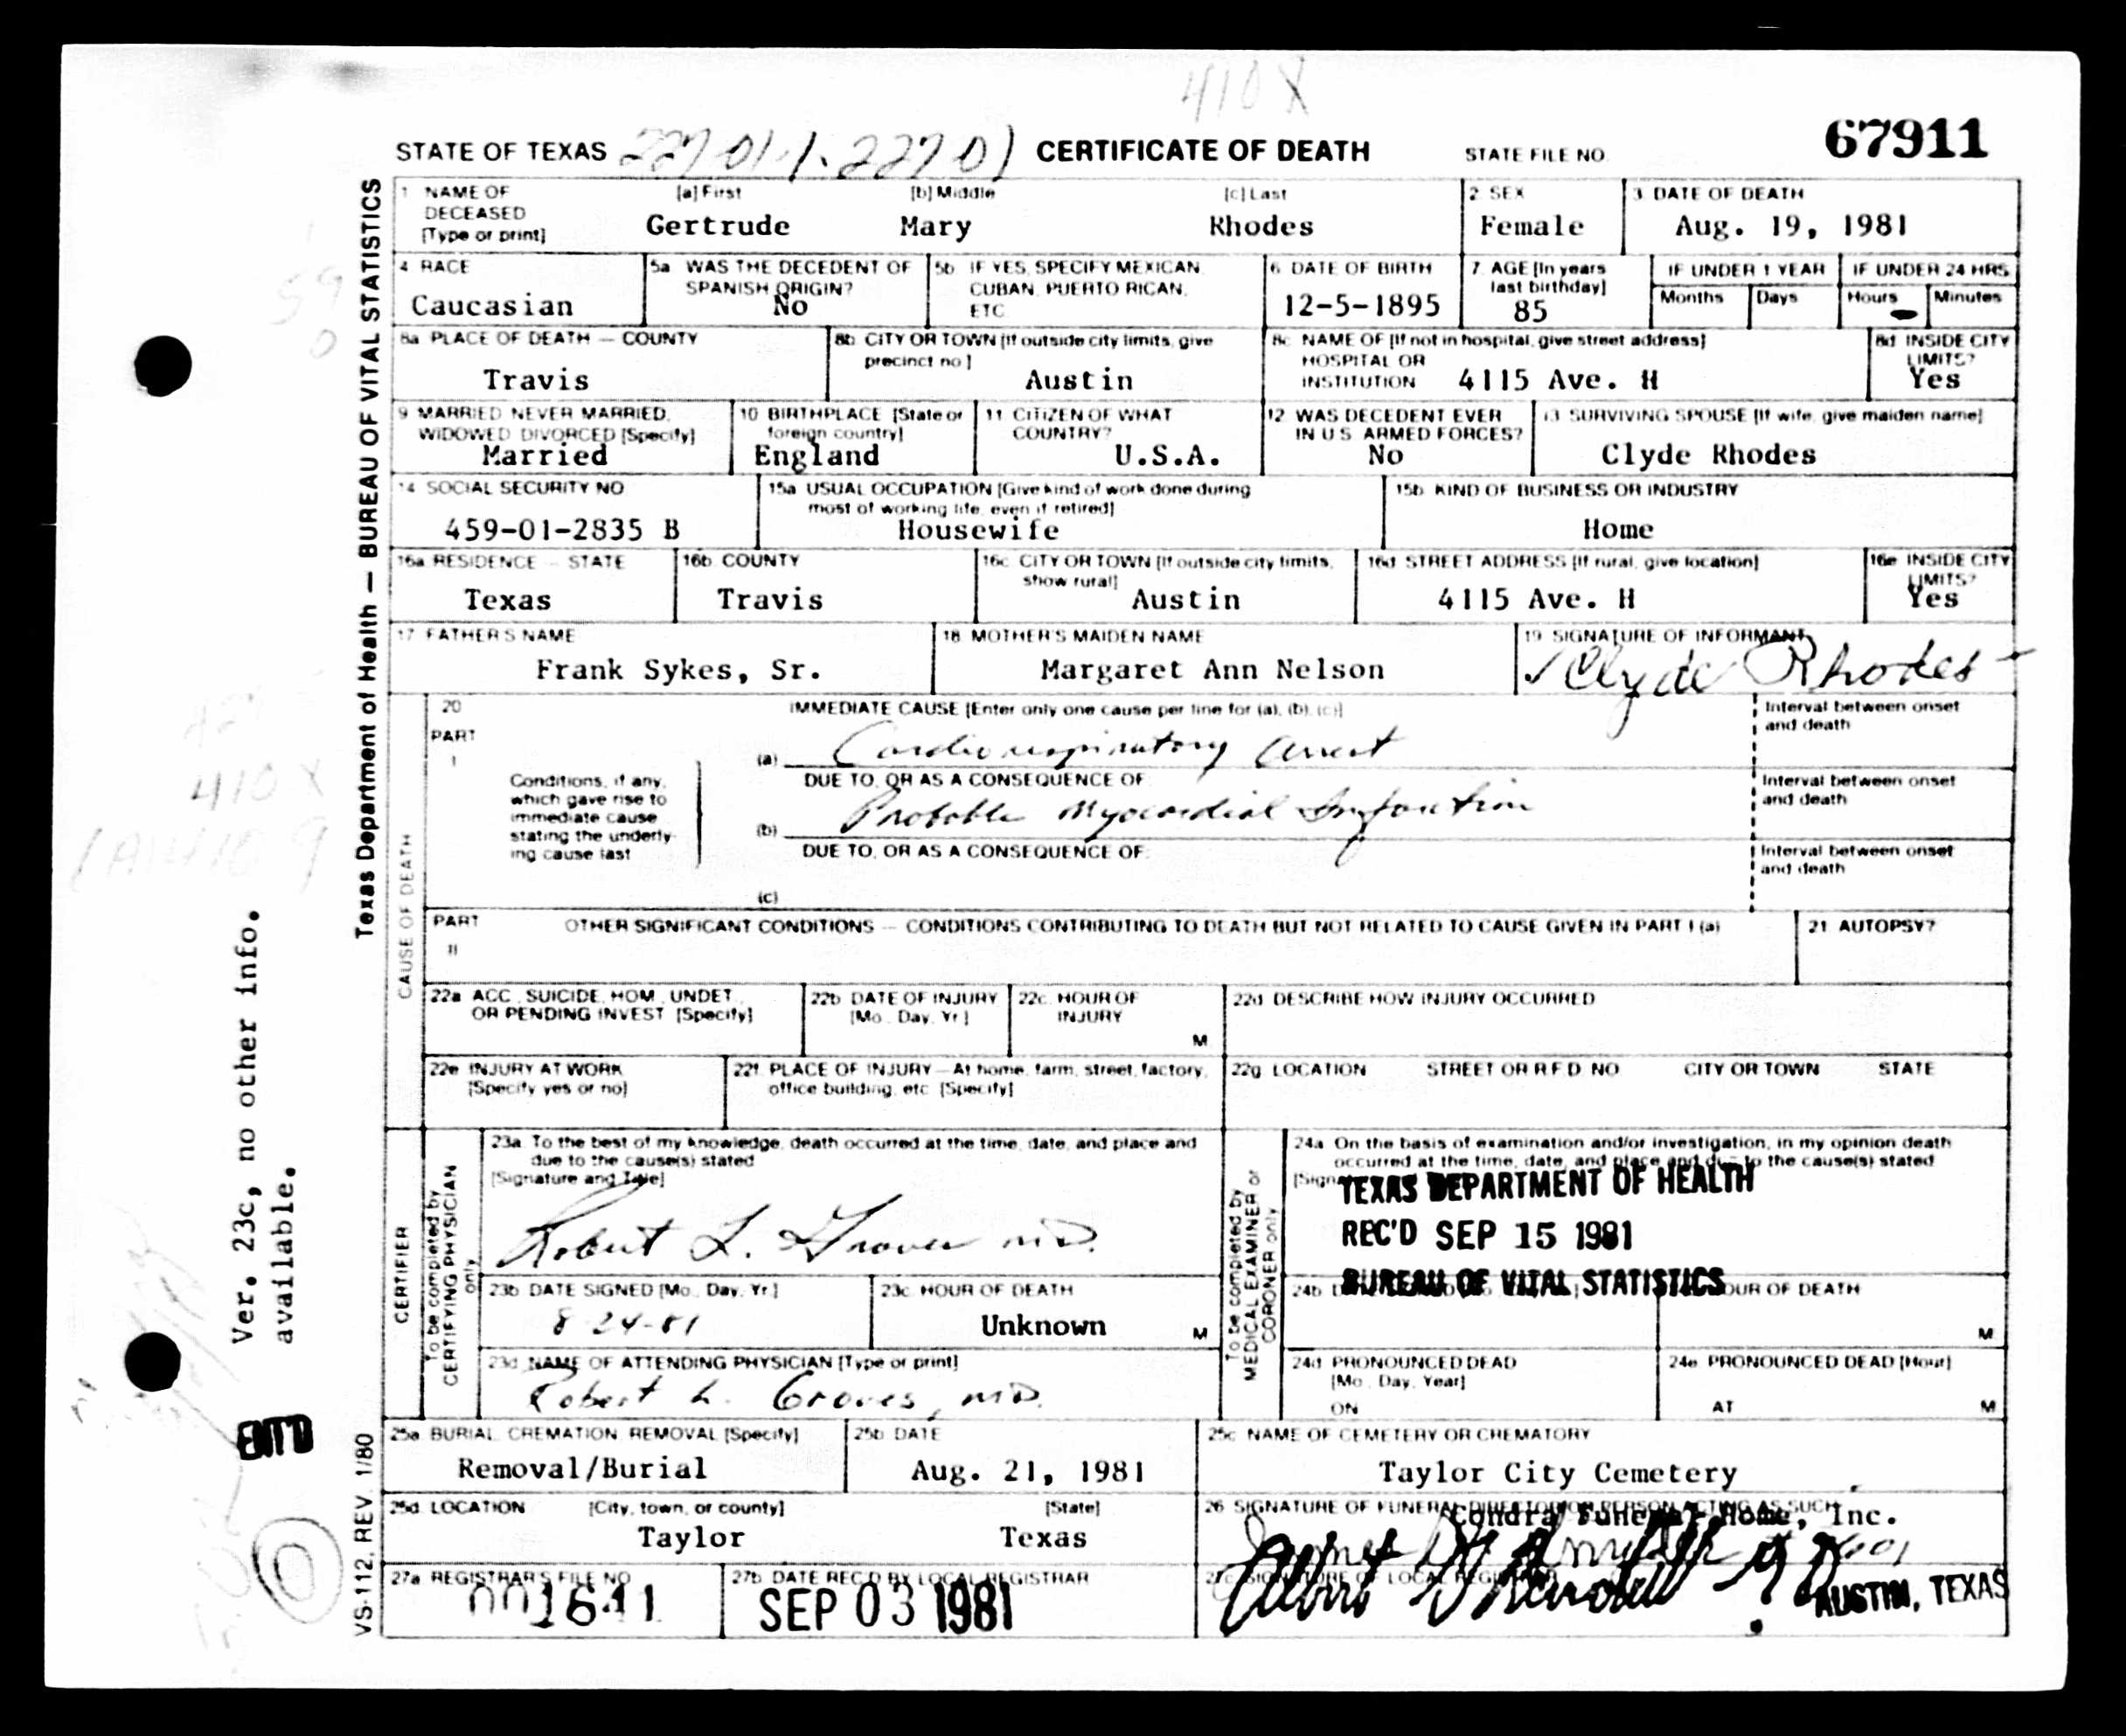 410X
STATE OF TEXAS 22701-1.22701 CERTIFICATE OF DEATH STATE FILE NO. 67911
Texas Department of Health — BUREAU OF VITAL STATISTICS
1 NAME OF DECEASED [Type or print] [a] First [b] Middle [c] Last 2 SEX 3 DATE OF DEATH
Gertrude Mary Rhodes Female Aug. 19, 1981
4 RACE 5a WAS THE DECEDENT OF SPANISH ORIGIN? 5b IF YES, SPECIFY MEXICAN, CUBAN, PUERTO RICAN, ETC 6 DATE OF BIRTH 7 AGE [In years last birthday] IF UNDER 1 YEAR IF UNDER 24 HRS
Months Days Hours Minutes
Caucasian No 12-5-1895 85
8a PLACE OF DEATH — COUNTY 8b CITY OR TOWN [If outside city limits, give precinct no.] 8c NAME OF [If not in hospital, give street address] HOSPITAL OR INSTITUTION 8d INSIDE CITY LIMITS?
Travis Austin 4115 Ave. H Yes
9 MARRIED, NEVER MARRIED, WIDOWED, DIVORCED [Specify] 10 BIRTHPLACE [State or foreign country] 11 CITIZEN OF WHAT COUNTRY? 12 WAS DECEDENT EVER IN U.S. ARMED FORCES? 13 SURVIVING SPOUSE [If wife, give maiden name]
Married England U.S.A. No Clyde Rhodes
14 SOCIAL SECURITY NO 15a USUAL OCCUPATION [Give kind of work done during most of working life, even if retired] 15b KIND OF BUSINESS OR INDUSTRY
459-01-2835 B Housewife Home
16a RESIDENCE — STATE 16b COUNTY 16c CITY OR TOWN [If outside city limits, show rural] 16d STREET ADDRESS [If rural, give location] 16e INSIDE CITY LIMITS?
Texas Travis Austin 4115 Ave. H Yes
17 FATHER'S NAME 18 MOTHER'S MAIDEN NAME 19 SIGNATURE OF INFORMANT
Frank Sykes, Sr. Margaret Ann Nelson Clyde Rhodes
CAUSE OF DEATH
20 IMMEDIATE CAUSE [Enter only one cause per line for (a), (b), (c)] Interval between onset and death
PART I
(a) Cardiorespiratory arrest
Conditions, if any, which gave rise to immediate cause stating the underlying cause last
DUE TO, OR AS A CONSEQUENCE OF: Interval between onset and death
(b) Probable Myocardial Infarction
DUE TO, OR AS A CONSEQUENCE OF: Interval between onset and death
(c)
410X
PART II OTHER SIGNIFICANT CONDITIONS — CONDITIONS CONTRIBUTING TO DEATH BUT NOT RELATED TO CAUSE GIVEN IN PART I (a) 21 AUTOPSY?
22a ACC., SUICIDE, HOM., UNDET., OR PENDING INVEST. [Specify] 22b DATE OF INJURY [Mo., Day, Yr.] 22c HOUR OF INJURY M 22d DESCRIBE HOW INJURY OCCURRED
22e INJURY AT WORK [Specify yes or no] 22f PLACE OF INJURY — At home, farm, street, factory, office building, etc. [Specify] 22g LOCATION STREET OR R.F.D. NO CITY OR TOWN STATE
CERTIFIER
To be completed by CERTIFYING PHYSICIAN only
23a To the best of my knowledge, death occurred at the time, date, and place and due to the cause(s) stated
[Signature and Title]
Robert L. Groves M.D.
23b DATE SIGNED [Mo., Day, Yr.] 23c HOUR OF DEATH
8-24-81 Unknown M
23d NAME OF ATTENDING PHYSICIAN [Type or print]
Robert L. Groves, M.D.
To be completed by MEDICAL EXAMINER or CORONER only
24a On the basis of examination and/or investigation, in my opinion death occurred at the time, date, and place and due to the cause(s) stated
TEXAS DEPARTMENT OF HEALTH
REC'D SEP 15 1981
BUREAU OF VITAL STATISTICS
24b HOUR OF DEATH M
24d PRONOUNCED DEAD [Mo., Day, Year] ON 24e PRONOUNCED DEAD [Hour] AT M
25a BURIAL, CREMATION, REMOVAL [Specify] 25b DATE 25c NAME OF CEMETERY OR CREMATORY
Removal/Burial Aug. 21, 1981 Taylor City Cemetery
25d LOCATION [City, town, or county] [State] 26 SIGNATURE OF FUNERAL DIRECTOR OR PERSON ACTING AS SUCH
Taylor Texas Condra Funeral Home, Inc.
27a REGISTRAR'S FILE NO 27b DATE REC'D BY LOCAL REGISTRAR 27c SIGNATURE OF LOCAL REGISTRAR
001641 SEP 03 1981 AUSTIN, TEXAS
VS-112, REV. 1/80
Ver. 23c, no other info.
available.
ENT'D